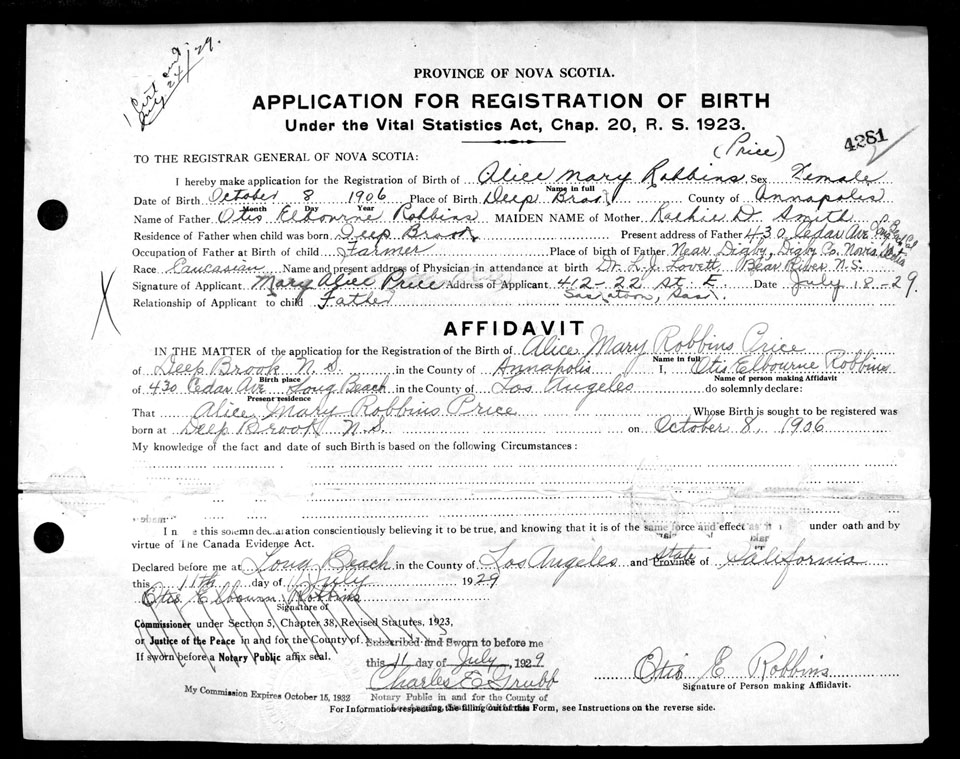 1 Cert
July 24/29.
PROVINCE OF NOVA SCOTIA.
APPLICATION FOR REGISTRATION OF BIRTH
Under the Vital Statistics Act, Chap. 20, R. S. 1923.
4281
(Price)
TO THE REGISTRAR GENERAL OF NOVA SCOTIA:
I hereby make application for the Registration of Birth of Alice Mary Robbins Sex Female
Name in full
Date of Birth October 8 1906 Place of Birth Deep Brook County of Annapolis
Month Day Year
Name of Father Otis Elbourne Robbins MAIDEN NAME of Mother D. Smith
Residence of Father when child was born Deep Brook Present address of Father 430 Cedar Ave Long Beach Cal
Occupation of Father at Birth of child Farmer Place of birth of Father Near Digby, Digby Co. Nova Scotia
Race Caucasian Name and present address of Physician in attendance at birth Dr. L. J. Lovett Bear River N.S.
Signature of Applicant Mary Alice Price Address of Applicant 412-22 St. E. Date July 18-29.
Saskatoon, Sas.
Relationship of Applicant to child Father
X
AFFIDAVIT
IN THE MATTER of the application for the Registration of the Birth of Alice Mary Robbins Price
Name in full
of Deep Brook N.S. in the County of Annapolis I, Otis Elbourne Robbins
Birth place Name of person making Affidavit
of 430 Cedar Ave Long Beach in the County of Los Angeles do solemnly declare:
Present residence
That Alice Mary Robbins Price Whose Birth is sought to be registered was
born at Deep Brook N.S. on October 8, 1906
My knowledge of the fact and date of such Birth is based on the following Circumstances:
I e this solemn declaration conscientiously believing it to be true, and knowing that it is of the same force and effect as under oath and by
virtue of The Canada Evidence Act.
state
Declared before me at Long Beach in the County of Los Angeles and Province of California
this 11th day of July 1929
Otis Elbourn Robbins
Signature of
Commissioner under Section 5, Chapter 38, Revised Statutes, 1923,
or Justice of the Peace in and for the County of
If sworn before a Notary Public affix seal.
Subscribed and Sworn to before me
this 11 day of July, 1929
Charles E. Grubb
Notary Public in and for the County of
My Commission Expires October 15, 1932
Otis E Robbins
Signature of Person making Affidavit.
For Information respecting the filling out of this Form, see Instructions on the reverse side.